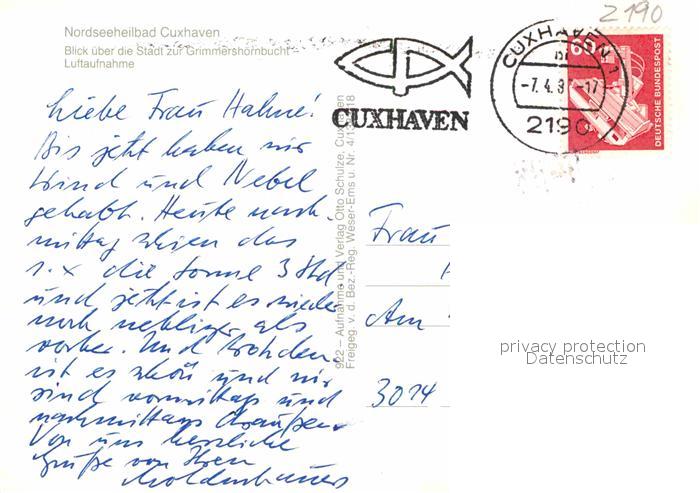 2190
Nordseeheilbad Cuxhaven
Blick über die Stadt zur Grimmershörnbucht
Luftaufnahme
CUXHAVEN 1
-7.4.8 -17
2190
CUXHAVEN
60
DEUTSCHE BUNDESPOST
Liebe Frau Hahne!
Bis jetzt haben wir
Wind und Nebel
gehabt. Heute nach-
mittag schien das
1. x die Sonne 3 Std.
und jetzt ist es wieder
noch nebliger als
vorher. Und trotzdem
ist es schön und wir
sind vormittags und
nachmittags draußen.
Von uns herzliche
Grüße von Ihren
922 – Aufnahme und Verlag Otto Schulze, Cuxhaven
Freigeg. v. d. Bez.-Reg. Weser-Ems u. Nr.
Frau
Am
3014
privacy protection
Datenschutz